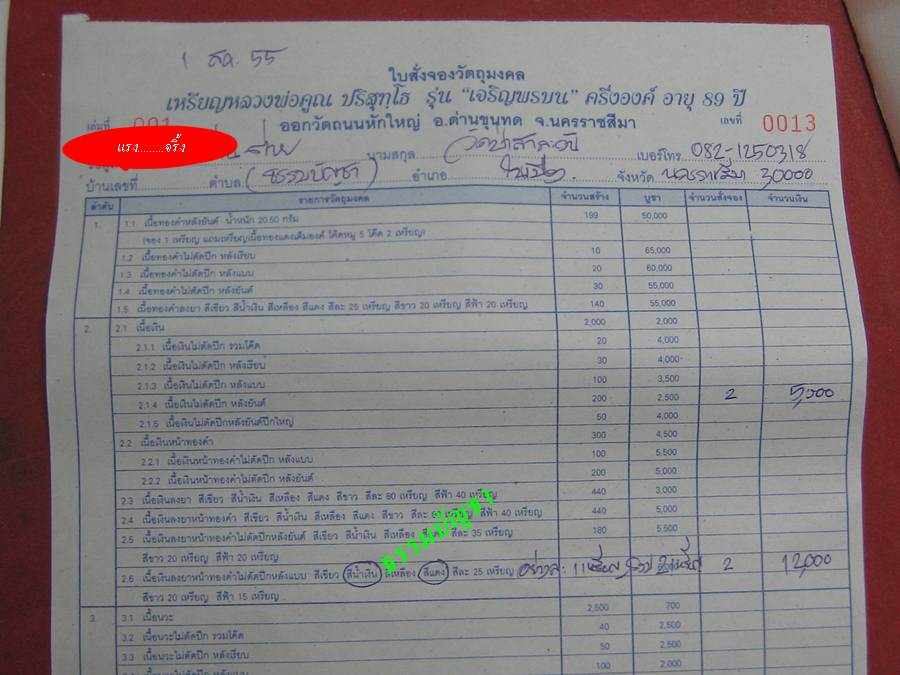 1 สค. 55
ใบสั่งจองวัตถุมงคล
เหรียญหลวงพ่อคูณ ปริสุทฺโธ รุ่น "เจริญพรบน" ครึ่งองค์ อายุ 89 ปี
ออกวัดถนนหักใหญ่ อ.ด่านขุนทด จ.นครราชสีมา
เล่มที่ 001 เลขที่ 0013
แรง........จริ้ง
นามสกุล วัดป่าสาละวัน เบอร์โทร 082-1250318
บ้านเลขที่ ตำบล (ธรรมบัญชา) อำเภอ ในเมือง จังหวัด นครราชสีมา 30000
ลำดับ รายการวัตถุมงคล จำนวนสร้าง บูชา จำนวนสั่งจอง จำนวนเงิน
1. 1.1 เนื้อทองคำหลังยันต์ น้ำหนัก 20.50 กรัม 199 50,000
(จอง 1 เหรียญ แถมเหรียญเนื้อทองแดงเต็มองค์ โค๊ดหมู 5 โค๊ด 2 เหรียญ)
1.2 เนื้อทองคำไม่ตัดปีก หลังเรียบ 10 65,000
1.3 เนื้อทองคำไม่ตัดปีก หลังแบบ 20 60,000
1.4 เนื้อทองคำไม่ตัดปีก หลังยันต์ 30 55,000
1.5 เนื้อทองคำลงยา สีเขียว สีน้ำเงิน สีเหลือง สีแดง สีละ 25 เหรียญ สีขาว 20 เหรียญ สีฟ้า 20 เหรียญ 140 55,000
2. 2.1 เนื้อเงิน 2,000 2,000
2.1.1 เนื้อเงินไม่ตัดปีก รวมโค๊ด 20 4,000
2.1.2 เนื้อเงินไม่ตัดปีก หลังเรียบ 30 4,000
2.1.3 เนื้อเงินไม่ตัดปีก หลังแบบ 100 3,500
2.1.4 เนื้อเงินไม่ตัดปีก หลังยันต์ 200 2,500 2 5,000
2.1.5 เนื้อเงินไม่ตัดปีกหลังยันต์ปีกใหญ่ 50 4,000
2.2 เนื้อเงินหน้าทองคำ 300 4,500
2.2.1 เนื้อเงินหน้าทองคำไม่ตัดปีก หลังแบบ 100 5,500
2.2.2 เนื้อเงินหน้าทองคำไม่ตัดปีก หลังยันต์ 200 5,000
2.3 เนื้อเงินลงยา สีเขียว สีน้ำเงิน สีเหลือง สีแดง สีขาว สีละ 80 เหรียญ สีฟ้า 40 เหรียญ 440 3,000
2.4 เนื้อเงินลงยาหน้าทองคำ สีเขียว สีน้ำเงิน สีเหลือง สีแดง สีขาว สีละ 80 เหรียญ สีฟ้า 40 เหรียญ 440 5,000
2.5 เนื้อเงินลงยาหน้าทองคำไม่ตัดปีกหลังยันต์ สีเขียว สีน้ำเงิน สีเหลือง สีแดง สีละ 35 เหรียญ 180 5,500
สีขาว 20 เหรียญ สีฟ้า 20 เหรียญ
2.6 เนื้อเงินลงยาหน้าทองคำไม่ตัดปีกหลังแบบ สีเขียว สีน้ำเงิน สีเหลือง สีแดง สีละ 25 เหรียญ อย่างละ 1 เหรียญ 2 12,000
สีขาว 20 เหรียญ สีฟ้า 15 เหรียญ
ธรรมบัญชา
3. 3.1 เนื้อนวะ 2,500 700
3.2 เนื้อนวะไม่ตัดปีก รวมโค๊ด 40 2,500
3.3 เนื้อนวะไม่ตัดปีก หลังเรียบ 50 2,500
100 2,000